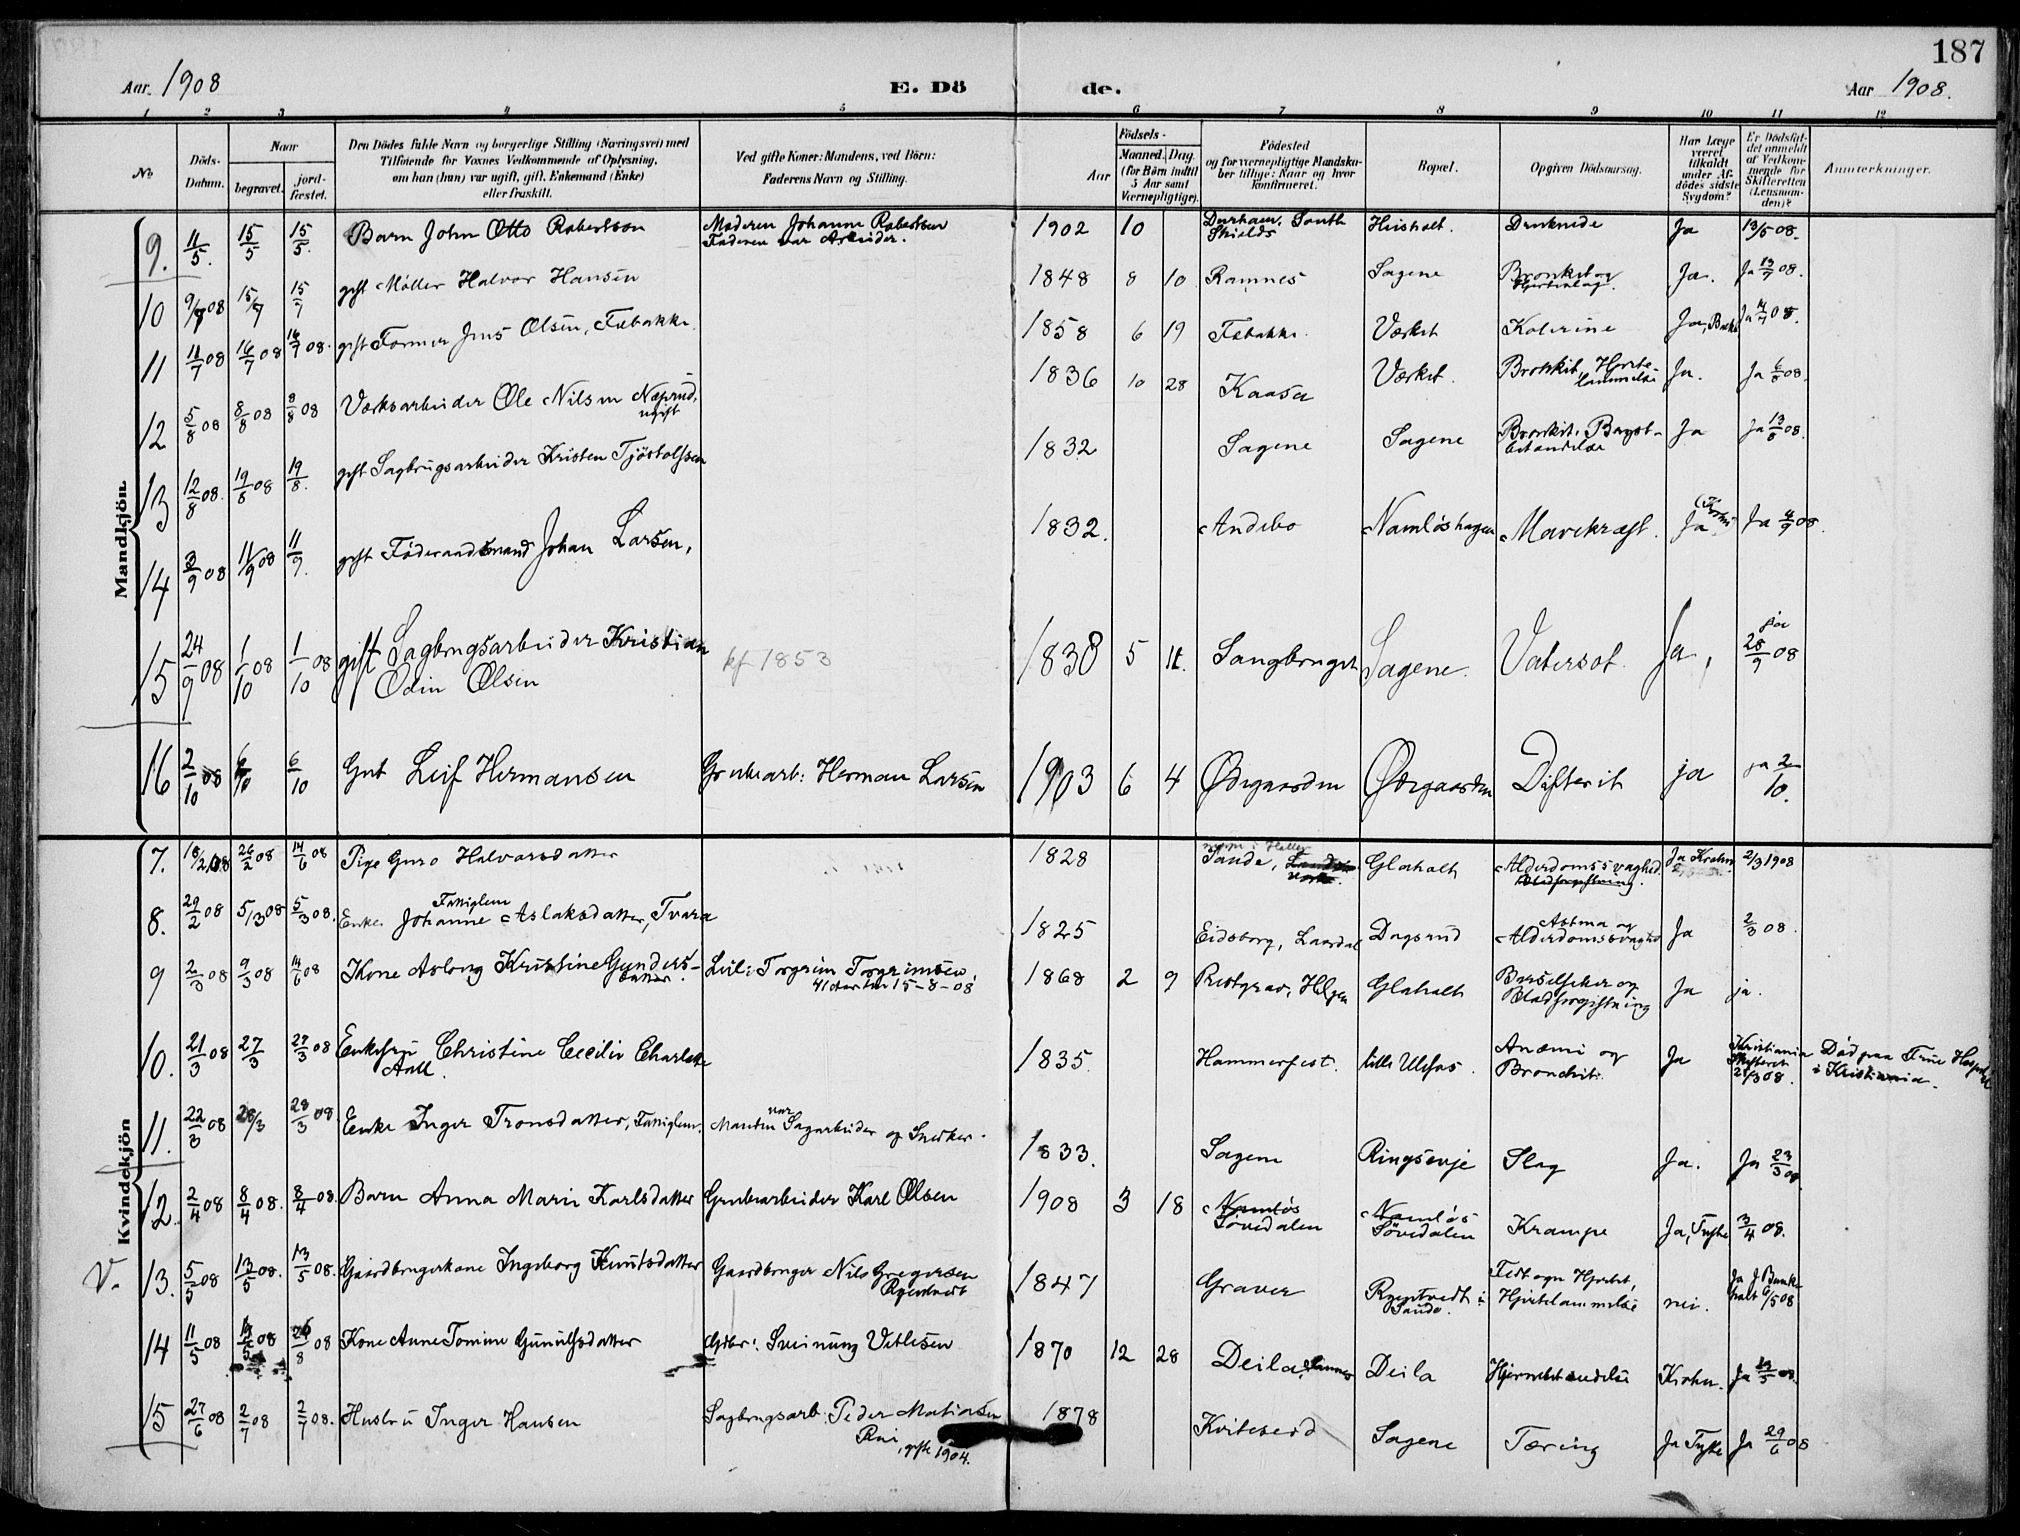 187
Aar 1908
E. Dö
de.
Aar 1908.
1 2 3 4 5 6 7 8 9 10 11 12
No
Döds-Datum.
Naar
begravet.
jord-fæstet.
Den Dödes fulde Navn og borgerlige Stilling (Næringsvei) med
Tilföiende for Voxnes Vedkommende af Oplysning,
om han (hun) var ugift, gift, Enkemand (Enke)
eller fraskilt.
Ved gifte Koner: Mandens, ved Börn:
Faderens Navn og Stilling.
Födsels-
Aar
Maaned. Dag.
(for Börn indtil
5 Aar samt
Værnepligtige).
Födested
og for værnepligtige Mandska-
ber tillige: Naar og hvor
konfirmeret.
Bopæl.
Opgiven Dödsaarsag.
Har Læge
været
tilkaldt
under Af-
dödes sidste
Sygdom?
Er Dödsfal-
det anmeldt
af Vedkom-
mende for
Skifteretten
(Lensman-
den)?
Anmærkninger.
Mandkjön.
9. 11/5. 15/5 15/5. Barn John Otto Robertson Moderen Johanne Robertsen
Faderen var Arbeider. 1902 10 Durham, South
Shields Heisholt. Druknede Ja 13/5 08.
10 9/7 08 15/7 15/7 gift Møller Halvor Hansen 1848 8 10 Ramnes Sagene Bronkit og
Ja. Ja 13/7 08.
11 11/7 08 16/7 08 16/7 08. gift Former Jens Olsen, Fæbakke. 1858 6 19 Fæbakke. Værket Kolerine Ja, Ja 14/7 08.
12 5/8 08 8/8 08 8/8 08 Værksarbeider Ole Nilsen Næprud,
ugift 1836 10 28 Kaasa Værket. Bronkit, Hjerte-
lammelse Ja. Ja 6/8 08.
13 12/8 08. 19/8 08 19/8. gift Sagbrugsarbeider Kristen Tjöstolfsen 1832 Sagene Sagene Bronkit. Bryst-
betændelse Ja Ja 13/8 08.
14 3/9 08 11/9 08 11/9. gift Föderaadsmand Johan Larsen, 1832. Andebo Namløshagen Mavekræft. Ja Ja 4/9 08.
15 24/9 08 1/10 08 1/10 08 gift Sagbrugsarbeider Kristian
Odin Olsen kf 1853 1838 5 11. Langbruget Sagene. Vatersot. Ja, 28/9 08
16 2/10 08 6/10 6/10 Gut Leif Hermansen Grubearb: Herman Larsen 1903 6 4 Ødegaarden Ødegaarden Difterit ja ja 2/10.
Kvindekjön
7. 18/2 08 26/2 08 14/6 08 Pige Guro Halvorsdatter 1828 Sande, Glaholt Alderdomssvaghed
Blodforgiftning. Ja Krohn 2/3 1908
8. 29/2 08 5/3 08 5/3 08. Enke Fattiglem
Johanne Aslaksdatter, Tvara 1825 Eidsborg, Laardal Dagsrud Astma og
Alderdomssvaghed Ja 2/3 08.
9 2/3 08 9/3 08 14/6 08 Kone Aslaug Kristine Gunders-
datter. Leil: Torgrim Torgrimsen,
15-8-08 1868 2 9 Prestgrav, Helgen Glaholt Barselfeber og
Blodforgiftning Ja ja.
10. 21/3 08 27/3 27/3 08 Enkefru Christine Cecilie Charlotte
Aall. 1835 Hammerfest. lille Ulefos. Anæmi og
Bronchit. Ja Kristiania
Skifteret
08. Død paa Frue Hospital
i Kristiania.
11. 22/3 08 28/3 28/3 08. Enke Inger Tronsdatter, Fattiglem. Manden var Sagarbeider og Snedker. 1833. Sagene Ringsevje Slag Ja. Ja 23/3 08.
12. 2/4 08 8/4 08. 8/4 08. Barn Anna Marie Karlsdatter Grubearbeider Karl Olsen 1908 3 18 Namløs
Sövedalen Namløs
Sövedalen Krampe Ja, Tufte 3/4 08.
V. 13. 5/5 08 13/5 08. 13/5 08. Gaardbrugerkone Ingeborg Knutsdatter Gaardbruger Nils Gregersen
1847 Graver i
Sande. Fedt ogn Hjertet,
Hjertelammelse nei. Ja J Bunke
holt 6/5 08
14 11/5 08 19/5 08 26/8 08 Kone Anne Tomine Gunulfsdatter Gbr: Sveinung Vetlesen 1870 12 28 Deila, Deila Hjernebetændelse Krohn. Ja 12/5 08.
15 27/6 08 2/7 08 2/7 08. Hustru Inger Hansen Sagbrugsarb. Peder Matiasen
gift 1904. 1878 Kviteseid Sagene Tæring Ja Tufte Ja 29/6 08